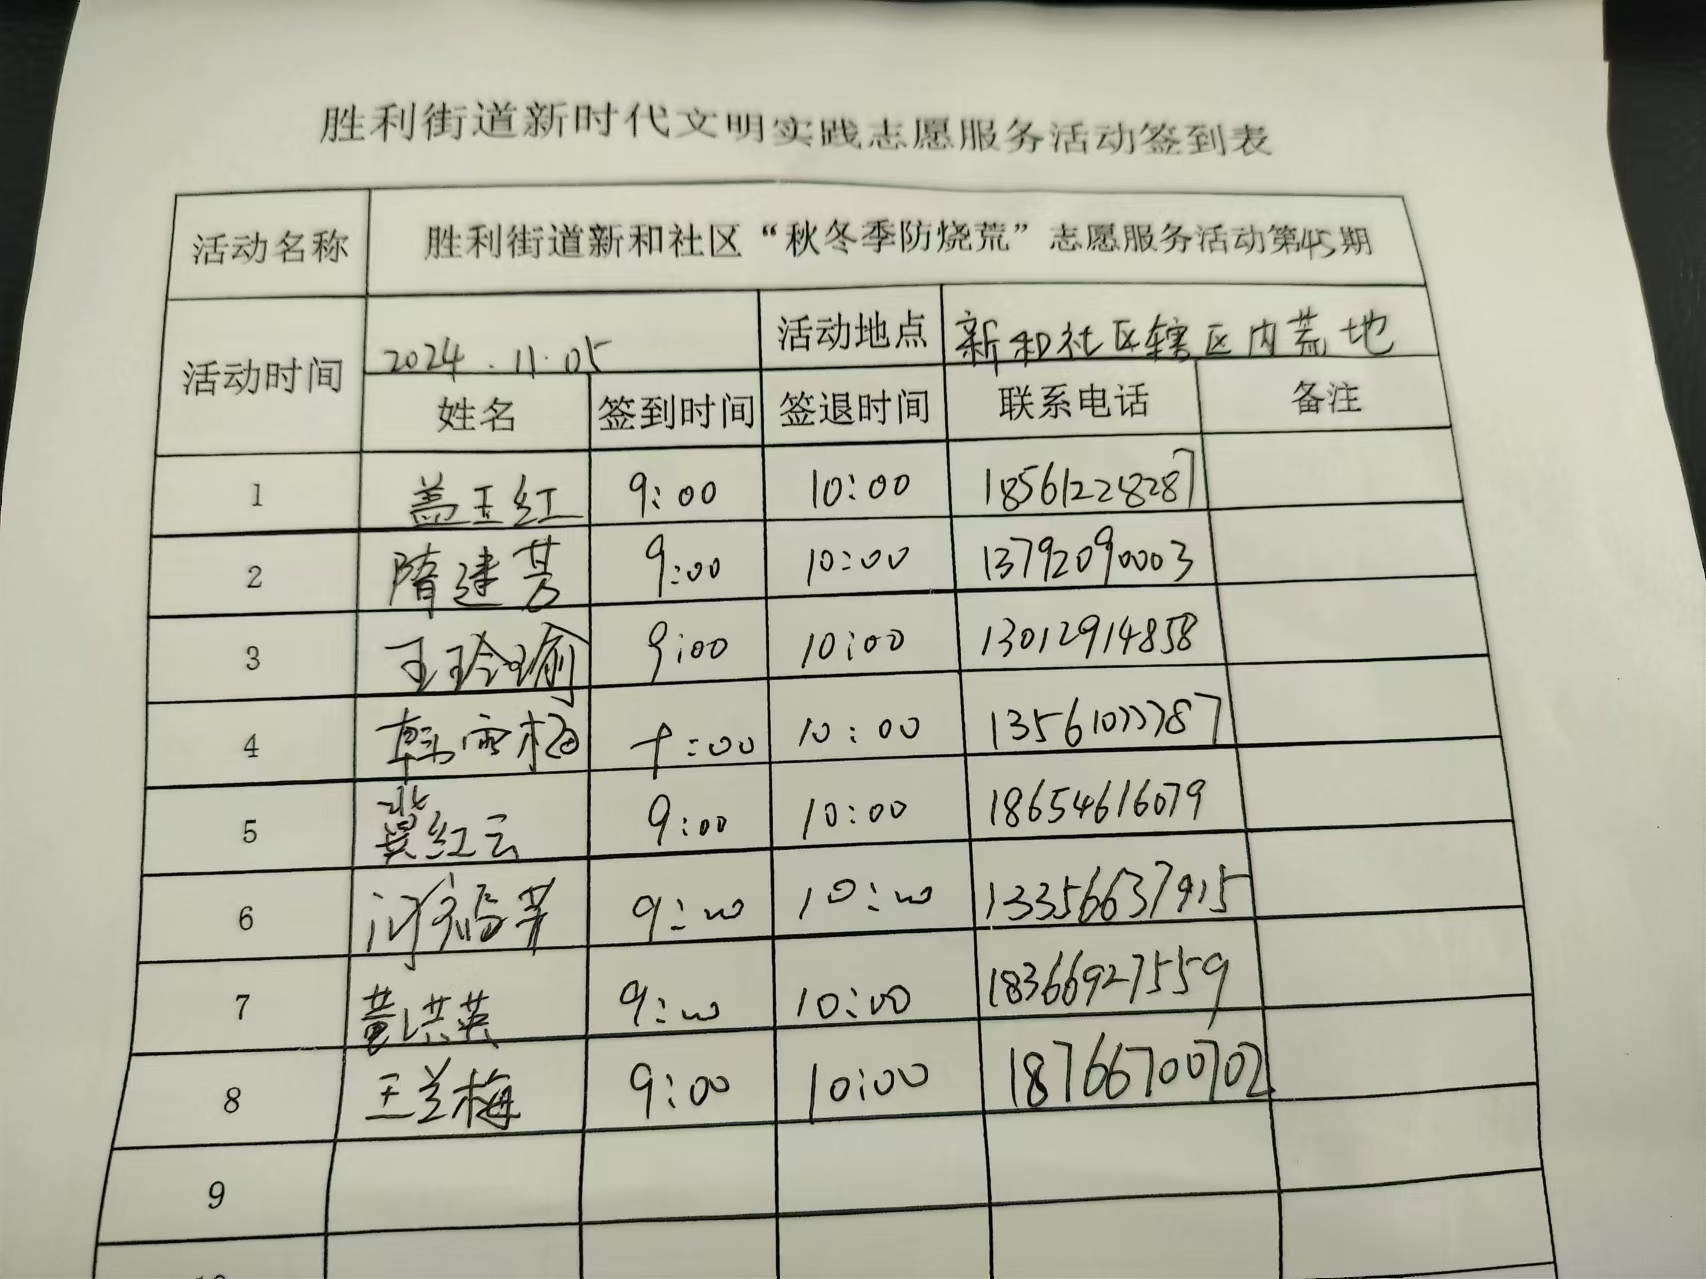 胜利街道新时代文明实践志愿服务活动签到表
活动名称 胜利街道新和社区“秋冬季防烧荒”志愿服务活动第45期
活动时间 2024.11.05 活动地点 新和社区辖区内荒地
姓名 签到时间 签退时间 联系电话 备注
1 盖玉红 9:00 10:00 18561228287
2 隋建芳 9:00 10:00 13792090003
3 王玲瑜 9:00 10:00 13012914858
4 韩雪梅 9:00 10:00
5 冀红云 9:00 10:00 18654616079
6 9:00 10:00 13356637915
7 黄洪英 9:00 10:00 18366927559
8 王兰梅 9:00 10:00 18766700702
9